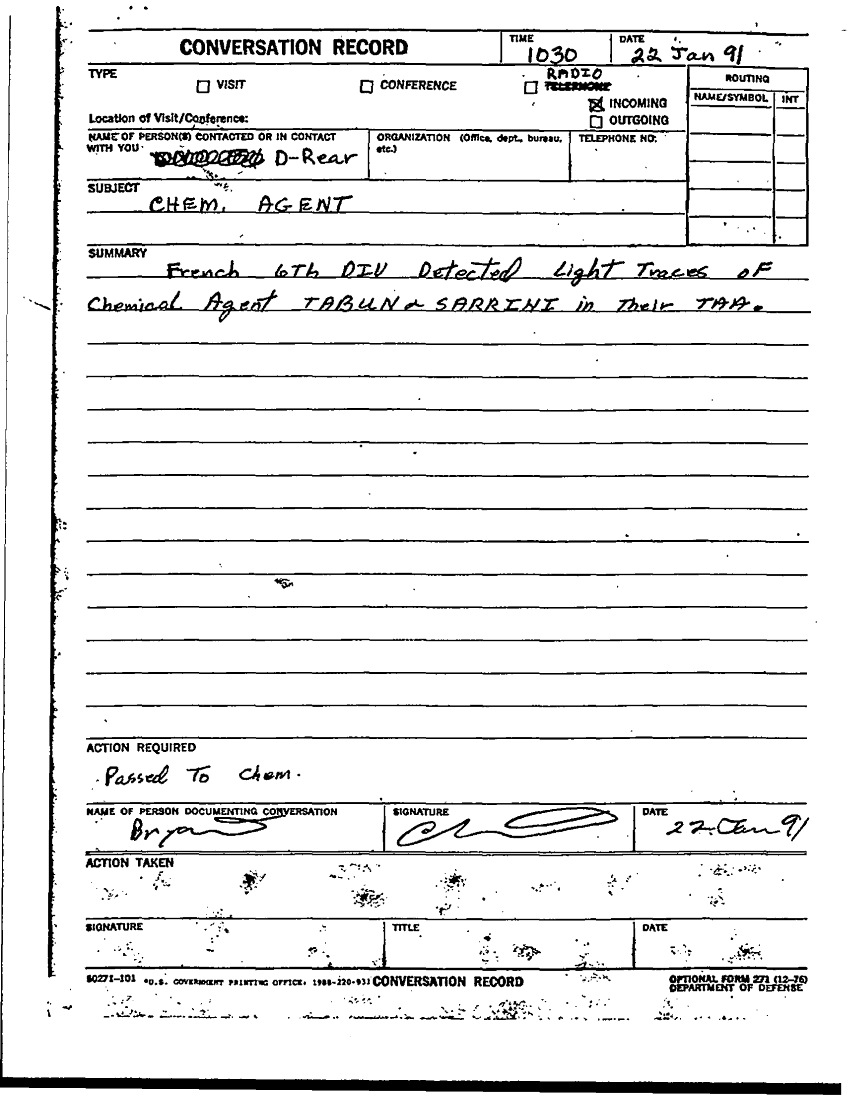 CONVERSATION RECORD
TIME
1030
DATE
22 Jan 91
TYPE
VISIT
CONFERENCE
RADIO
TELEPHONE
INCOMING
OUTGOING
ROUTING
NAME/SYMBOL INT
Location of Visit/Conference:
NAME OF PERSON(S) CONTACTED OR IN CONTACT
WITH YOU
D-Rear
ORGANIZATION (Office, dept., bureau,
etc.)
TELEPHONE NO:
SUBJECT
CHEM. AGENT
SUMMARY
French 6Th DIV Detected Light Traces oF
Chemical Agent TABUN & SARRINI in Their TAA.
ACTION REQUIRED
Passed To Chem.
NAME OF PERSON DOCUMENTING CONVERSATION
Bryan
SIGNATURE
DATE
22 Jan 91
ACTION TAKEN
SIGNATURE
TITLE
DATE
50271-101 *U.S. GOVERNMENT PRINTING OFFICE: 1988-220-93 CONVERSATION RECORD
OPTIONAL FORM 271 (12-76)
DEPARTMENT OF DEFENSE